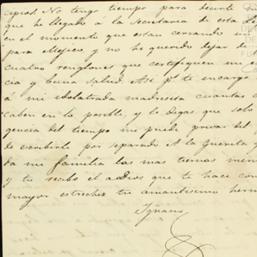 No tengo tiempo para decirte
que he llegado á la secretaria de esta
en el momento que estan cerrando
para Mejico y no he querido dejar de
cuatro renglones que certifiquen mi
cia y buena salud. Asi pr. te encargo
á mi idolatrada madrecita cuantas
caben en lo posible, y le digas que solo
gencia del tiempo me puede privar del
de escribirle por separado. A la Juanita y
da mi familia las mas tiernas
y tu recibe el adios que te hace con
mayor estrechez tu amantisimo
Ignacio